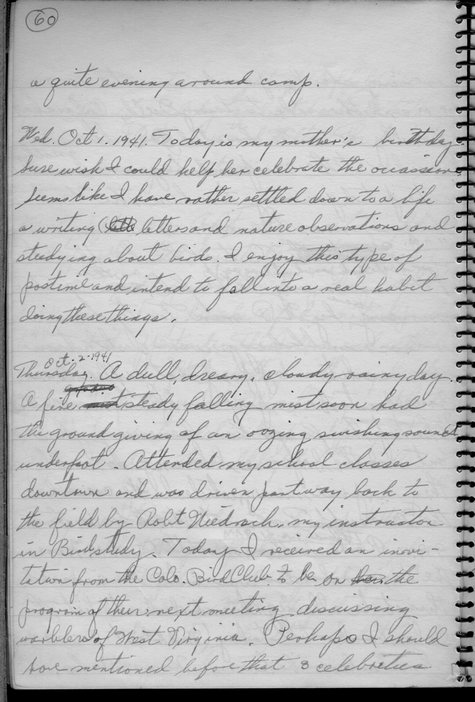 60
a quite evening around camp.
Wed. Oct. 1. 1941. Today is my mother's birthday
Sure wish I could help her celebrate the occassion.
Seems like I have rather settled down to a life
a writing letters and nature observations and
studying about birds. I enjoy this type of
pastime and intend to fall into a real habit
doing these things.
Oct. 2-1941
Thursday. A dull, dreary, cloudy rainy day.
A fine steady falling mist soon had
the ground giving off an oozing swishing sound
underfoot. Attended my school classes
downtown and was driven partway back to
the field by Robt Niedrach, my instructor
in Bird study. Today I received an invi-
tation from the Colo. Bird Club to be on the
program of their next meeting discussing
warblers of West Virginia. Perhaps I should
have mentioned before that 3 celebreties